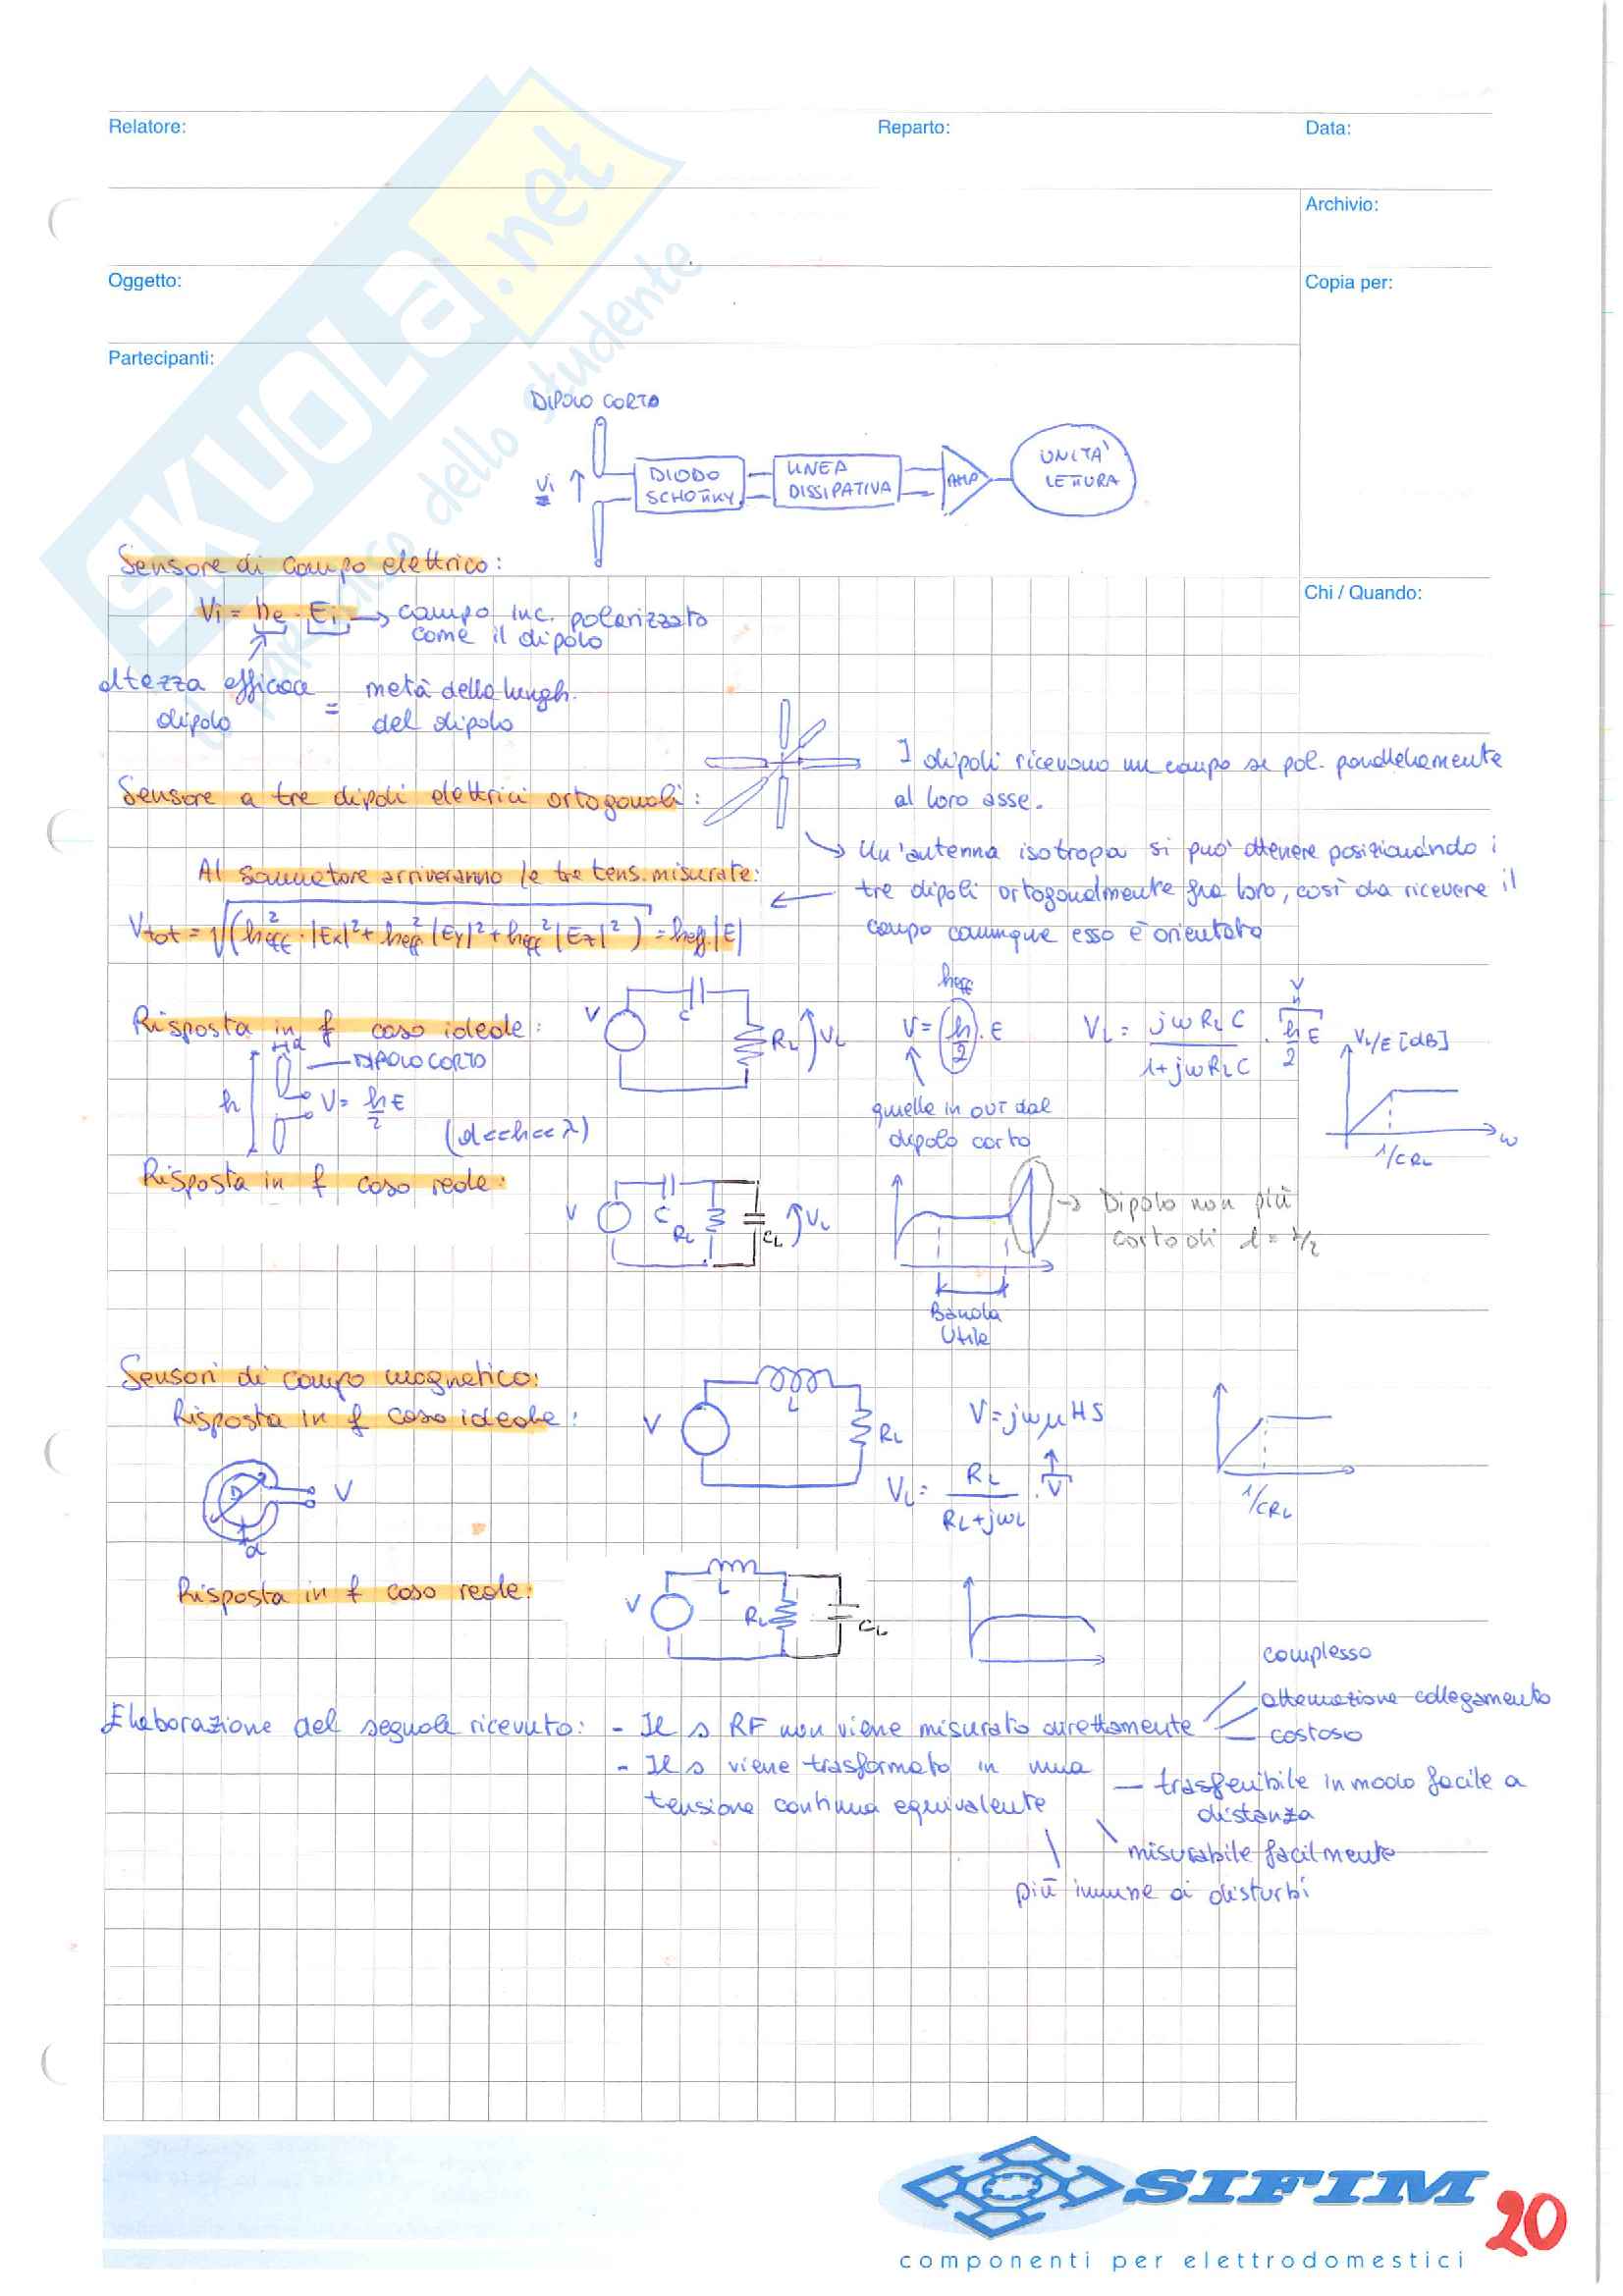 Relatore:
Reparto:
Data:
Archivio:
Oggetto:
Copia per:
Partecipanti:
SKUOLA.net
il paradiso dello studente
DIPOLO CORTO
Vi
DIODO
SCHOTTKY
LINEA
DISSIPATIVA
AMP
UNITA'
LETTURA
Sensore di campo elettrico:
Chi / Quando:
Vi = he · Ei → campo inc. polarizzato
come il dipolo
altezza efficace = metà della lungh.
dipolo
del dipolo
I dipoli ricevono un campo se pol. parallelamente
al loro asse.
Sensore a tre dipoli elettrici ortogonali:
Un'antenna isotropa si può ottenere posizionando i
tre dipoli ortogonalmente fra loro, così da ricevere il
campo comunque esso è orientato
Al sommatore arriveranno le tre tens. misurate:
Vtot = √(heff² · |Ex|² + heff² |Ey|² + heff² |Ez|²) = heff |E|
Risposta in f caso ideale:
d
DIPOLO CORTO
h
V = h/2 E
(d<<h<<λ)
V
C
RL
VL
heff
V = (h/2) · E
quella in OUT dal
dipolo corto
VL = jωRLC / 1+jωRLC · h/2 E
V
VL/E [dB]
1/CRL
ω
Risposta in f caso reale:
V
C
RL
CL
VL
→ Dipolo non più
corto di l = λ/2
Banda
Utile
Sensori di campo magnetico:
Risposta in f caso ideale:
D
V
d
V
L
RL
V = jωμHS
VL = RL / RL+jωL · V
1/CRL
Risposta in f caso reale:
V
L
RL
CL
Elaborazione del segnale ricevuto: - Il s RF non viene misurato direttamente
complesso
attenuazione collegamento
costoso
- Il s viene trasformato in una
tensione continua equivalente
trasferibile in modo facile a
distanza
misurabile facilmente
più immune ai disturbi
SIFIM
componenti per elettrodomestici
20